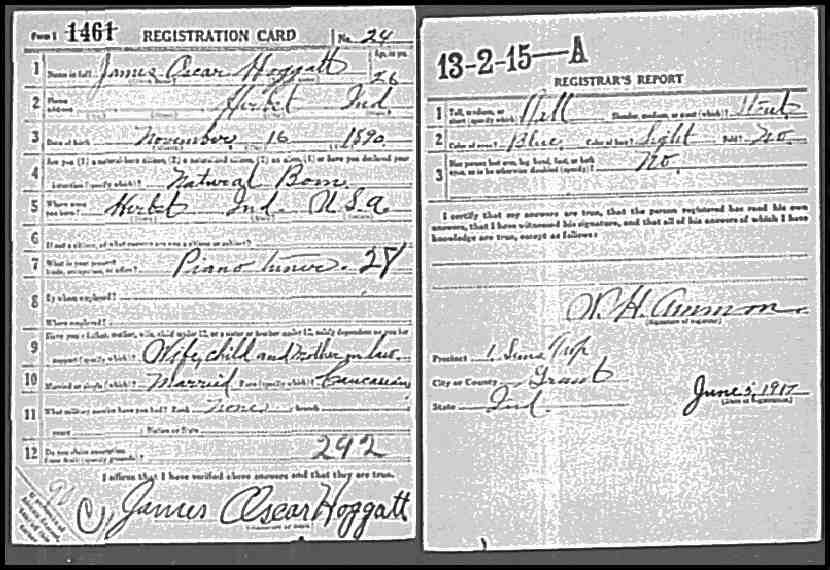 Form 1 1461 REGISTRATION CARD No. 24
1 Name in full James Oscar Hoggatt Age, in yrs. 26
2 Home address Herbst Ind
3 Date of birth November 16 1890
4 Are you (1) a natural-born citizen, (2) a naturalized citizen, (3) an alien, (4) or have you declared your
intention (specify which)? Natural Born
5 Where were you born? Herbst Ind. U.S.a
6 If not a citizen, of what country are you a citizen or subject?
7 What is your present trade, occupation, or office? Piano tuner. 28
8 By whom employed?
Where employed?
9 Have you a father, mother, wife, child under 12, or a sister or brother under 12, solely dependent on you for
support (specify which)? Wife, child and Mother in law.
10 Married or single (which)? Married Race (specify which)? Caucasian
11 What military service have you had? Rank None branch
years Nation or State
12 Do you claim exemption from draft (specify grounds)? 292
I affirm that I have verified above answers and that they are true.
James Oscar Hoggatt
13-2-15—A
REGISTRAR'S REPORT
1 Tall, medium, or short (specify which)? Slender, medium, or stout (which)? Stout
2 Color of eyes? Blue Color of hair? Light Bald? No
3 Has person lost arm, leg, hand, foot, or both eyes, or is he otherwise disabled (specify)? No.
I certify that my answers are true, that the person registered has read his own
answers, that I have witnessed his signature, and that all of his answers of which I have
knowledge are true, except as follows:
W. H. Ammon
(Signature of registrar)
Precinct 1 Sims Twp
City or County Grant
State Ind.
June 5, 1917
(Date of registration)